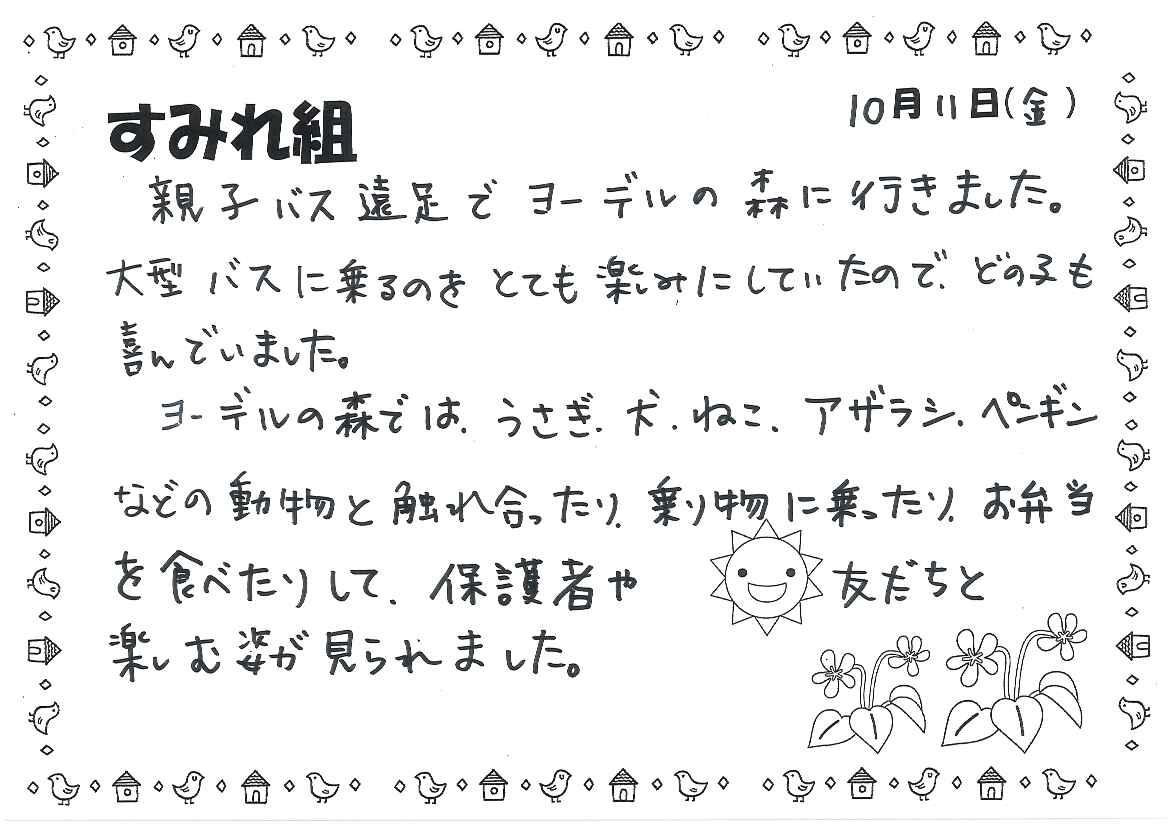 10月11日(金)
すみれ組
親子バス遠足でヨーデルの森に行きました。
大型バスに乗るのをとても楽しみにしていたので、どの子も
喜んでいました。
ヨーデルの森では、うさぎ、犬、ねこ、アザラシ、ペンギン
などの動物と触れ合ったり、乗り物に乗ったり、お弁当
を食べたりして、保護者や友だちと
楽しむ姿が見られました。